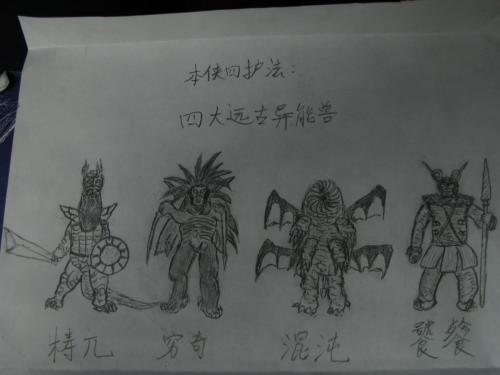 本侠四护法：
四大远古异能兽
梼兀 穷奇 混沌 饕餮